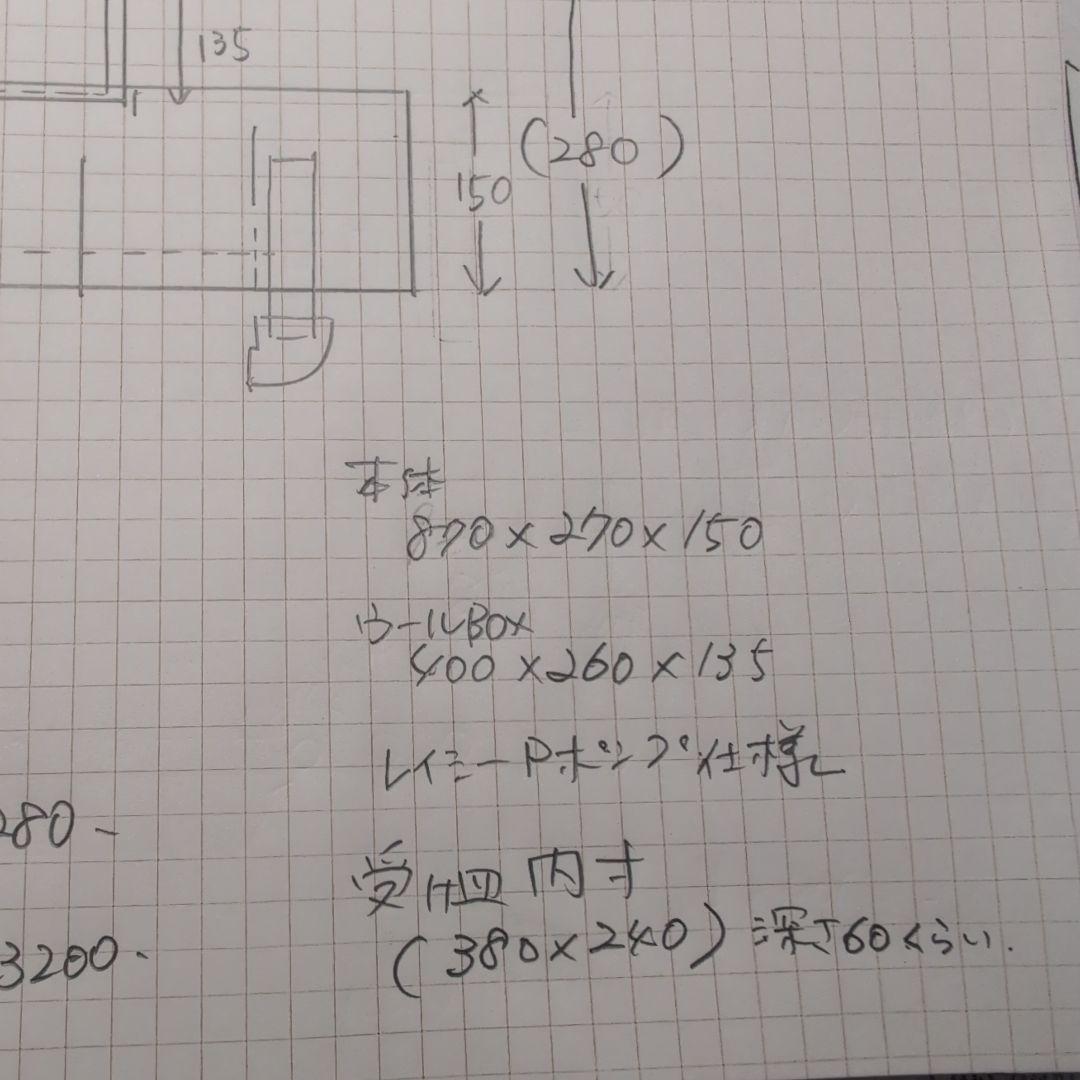 135
(280)
150
本体
870×270×150
ウールBOX
400×260×135
レイシーPポンプ仕様
受け皿 内寸
280-
(380×240) 深さ60くらい.
3200-